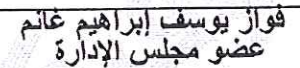 فواز يوسف إبراهيم غانم
عضو مجلس الإدارة